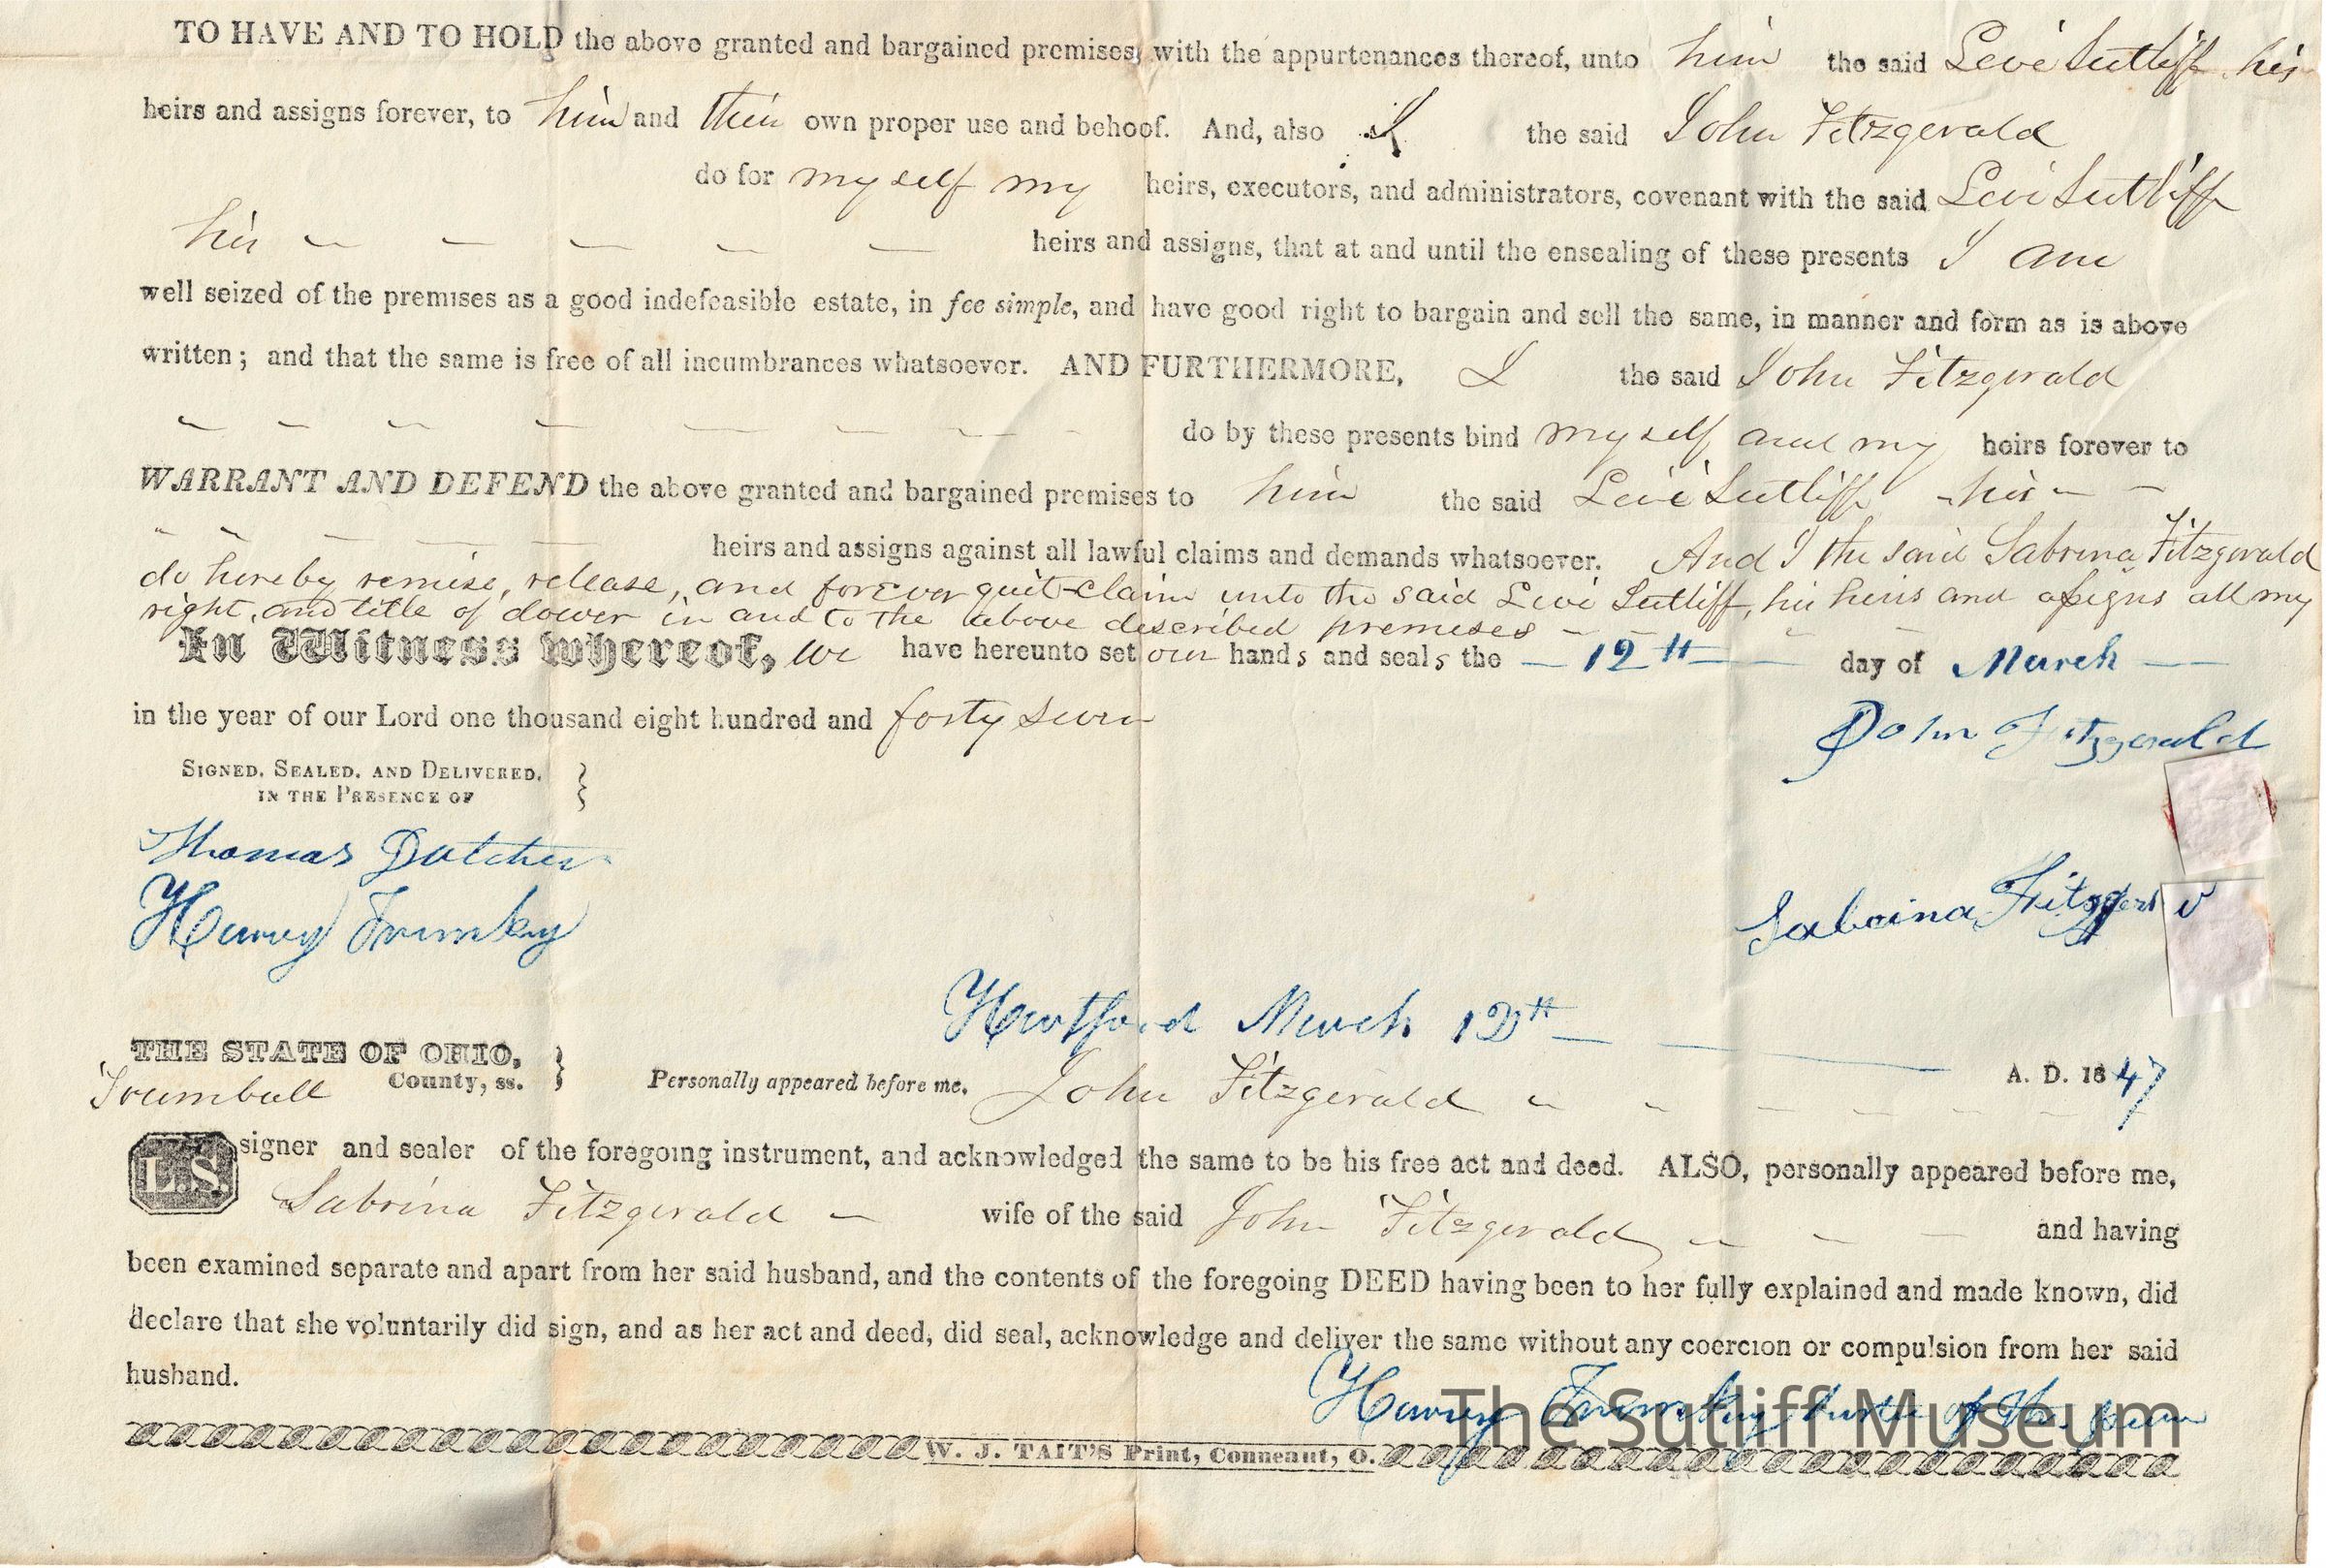 TO HAVE AND TO HOLD the above granted and bargained premises, with the appurtenances thereof, unto him the said Levi Sutliff his
heirs and assigns forever, to him and their own proper use and behoof. And, also I the said John Fitzgerald
do for myself my heirs, executors, and administrators, covenant with the said Levi Sutliff
his - - - - - heirs and assigns, that at and until the ensealing of these presents I am
well seized of the premises as a good indefeasible estate, in fee simple, and have good right to bargain and sell the same, in manner and form as is above
written; and that the same is free of all incumbrances whatsoever. AND FURTHERMORE, I the said John Fitzgerald
- - - - - - - - do by these presents bind myself and my heirs forever to
WARRANT AND DEFEND the above granted and bargained premises to him the said Levi Sutliff - his - -
- - - - - heirs and assigns against all lawful claims and demands whatsoever. And I the said Sabrina Fitzgerald
do hereby remise, release, and forever quit-claim unto the said Levi Sutliff, his heirs and assigns all my
right, and title of dower in and to the above described premises - - - - -
In Witness whereof, we have hereunto set our hands and seals the - 12th - day of March -
in the year of our Lord one thousand eight hundred and forty seven
John Fitzgerald
SIGNED, SEALED, AND DELIVERED, }
IN THE PRESENCE OF
Thomas Dutcher
Sabrina Fitzger
Harvey
Hartford March 12th -
THE STATE OF OHIO, }
Trumbull County, ss. Personally appeared before me, John Fitzgerald - - - - - - A. D. 1847
L.S. signer and sealer of the foregoing instrument, and acknowledged the same to be his free act and deed. ALSO, personally appeared before me,
Sabrina Fitzgerald - wife of the said John Fitzgerald - - - and having
been examined separate and apart from her said husband, and the contents of the foregoing DEED having been to her fully explained and made known, did
declare that she voluntarily did sign, and as her act and deed, did seal, acknowledge and deliver the same without any coercion or compulsion from her said
husband.
Harvey of the
The Sutliff Museum
W. J. TAIT'S Print, Conneaut, O.